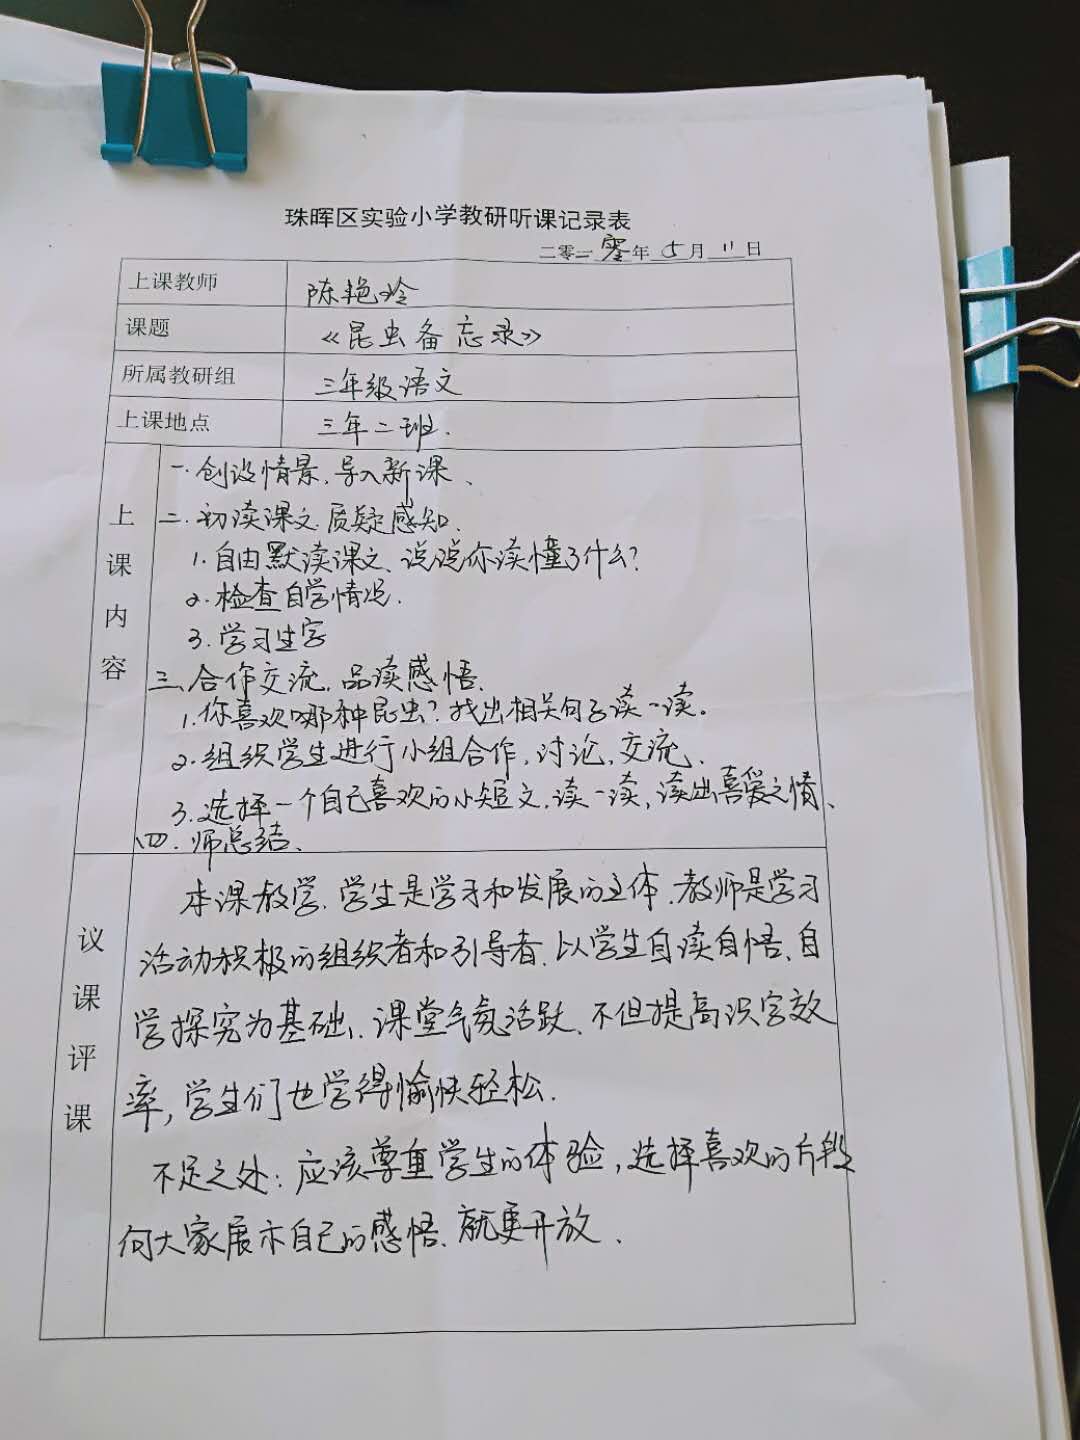 珠晖区实验小学教研听课记录表
二零二零年 5 月 11 日
上课教师 陈艳玲
课题 《昆虫备忘录》
所属教研组 三年级语文
上课地点 三年二班.
上课内容
一.创设情景,导入新课、
二.初读课文,质疑感知.
1.自由默读课文、说说你读懂了什么?
2.检查自学情况.
3.学习生字
三、合作交流,品读感悟.
1.你喜欢哪种昆虫?找出相关句子读一读。
2.组织学生进行小组合作,讨论,交流、
3.选择一个自己喜欢的小短文,读一读,读出喜爱之情、
四.师总结、
议课评课
本课教学,学生是学习和发展的主体.教师是学习
活动积极的组织者和引导者.以学生自读自悟、自
学探究为基础、课堂气氛活跃、不但提高识字效
率,学生们也学得愉快轻松.
不足之处:应该尊重学生的体验,选择喜欢的片段
向大家展示自己的感悟、就更开放、